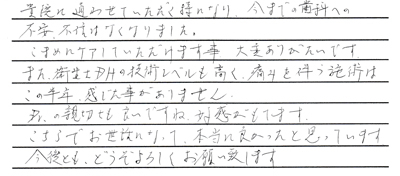 貴院に通わせていただく様になり、今までの歯科への
不安、不信はなくなりました。
こまめにケアしていただけます事 大変ありがたいです
また、衛生士さんの技術レベルも高く、痛みを伴う施術は
この半年、感じた事がありません。
Dr.の親切も良いですね、好感がもてます。
こちらでお世話になって、本当に良かったと思っています
今後とも、どうぞよろしくお願い致します